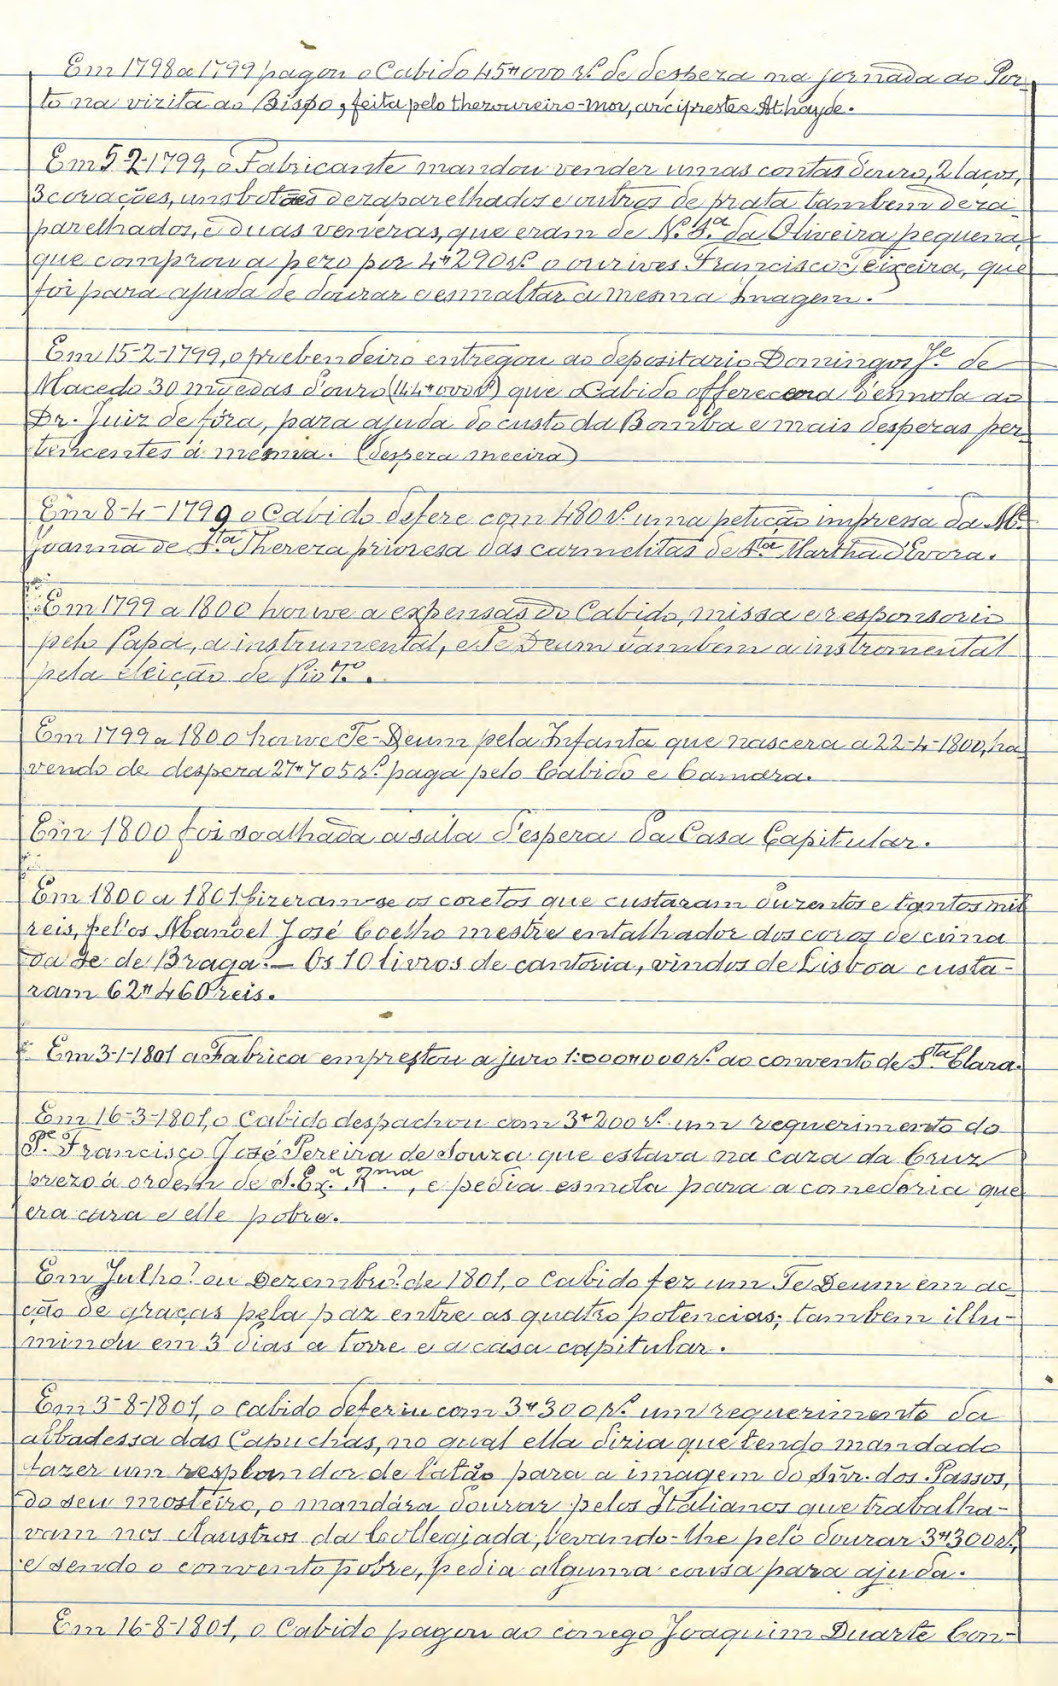 Em 1798 a 1799 pagou o Cabido 45#000 rs. de despeza na jornada ao Por-
to na vizita ao Bispo, feita pelo thezoureiro-mor, arcipreste Athayde.
Em 5-2-1799, o Fabricante mandou vender umas contas d'ouro, 2 laços,
3 corações, uns botões dezaparelhados e outros de prata tambem deza-
parelhados, e duas veneras, que eram de N. Sª da Oliveira pequena,
que comprou a pezo por 4#290 rs. o ourives Francisco Teixeira, que
foi para ajuda de dourar e esmaltar a mesma Imagem.
Em 15-2-1799, o prebendeiro entregou ao depositario Domingos Jé de
Macedo 30 moedas d'ouro (144#000 rs) que o Cabido offerecera d'esmola ao
Dr. Juiz de fóra, para ajuda do custo da Bomba e mais despezas per-
tencentes á mesma. (despeza meeira)
Em 8-4-1799 o Cabido defere com 480 rs. uma petição impressa da Me
Joanna de Sta Thereza prioresa das carmelitas de Sta Martha d'Evora.
Em 1799 a 1800 houve a expensas do Cabido, missa e responsorio
pelo Papa, a instrumental, e Te Deum tambem a instromental
pela eleição de Pio 7º.
Em 1799 a 1800 houve Te-Deum pela Infanta que nascera a 22-4-1800, ha-
vendo de despeza 27#705 rs. paga pelo Cabido e Camara.
Em 1800 foi soalhada a sála d'espera da Casa Capitular.
Em 1800 a 1801 fizeram-se os coretos que custaram duzentos e tantos mil
reis, fel'os Manoel José Coelho mestre entalhador dos coros de cima
da Sé de Braga. — Os 10 livros de cantoria, vindos de Lisboa custa-
ram 62#460 reis.
Em 3-1-1801 a Fabrica emprestou a juro 1:000#000 rs. ao convento de Sta Clara.
Em 16-3-1801, o Cabido despachou com 3#200 rs. um requerimento do
Pe. Francisco José Pereira de Souza que estava na caza da Cruz
prezo á ordem de S. Exª Rma, e pedia esmola para a comedoria que
era cara e elle pobre.
Em Julho? ou Dezembro? de 1801, o Cabido fez um Te Deum em ac-
ção de graças pela paz entre as quatro potencias; tambem illu-
minou em 3 dias a torre e a casa capitular.
Em 3-8-1801, o Cabido deferiu com 3#300 rs. um requerimento da
abbadessa das Capuchas, no qual ella dizia que tendo mandado
fazer um resplandor de latão para a imagem do Snr. dos Passos,
do seu mosteiro, o mandára dourar pelos Italianos que trabalha-
vam nos claustros da Collegiada, levando-lhe pelo dourar 3#300 rs,
e sendo o convento pobre, pedia alguma cousa para ajuda.
Em 16-8-1801, o Cabido pagou ao conego Joaquim Duarte Con-